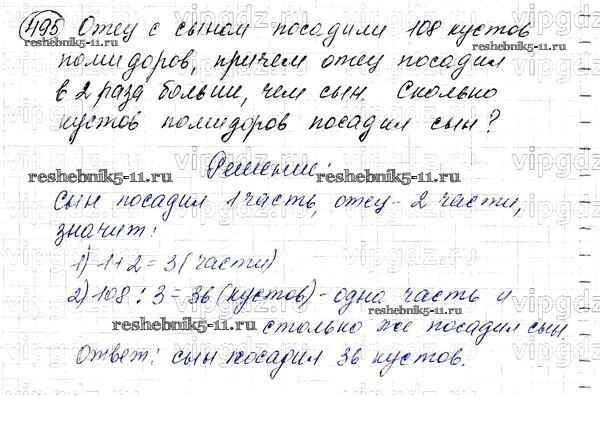 495 Отец с сыном посадили 108 кустов
помидоров, причем отец посадил
в 2 раза больше, чем сын. Сколько
кустов помидоров посадил сын?
Решение:
reshebnik5-11.ru reshebnik5-11.ru
Сын посадил 1 часть, отец - 2 части,
значит:
1) 1+2=3 (части)
reshebnik5-11.ru
2) 108 : 3 = 36 (кустов) - одна часть и
столько же посадил сын.
reshebnik5-11.ru
Ответ: сын посадил 36 кустов.
reshebnik5-11.ru
vipgdz.ru